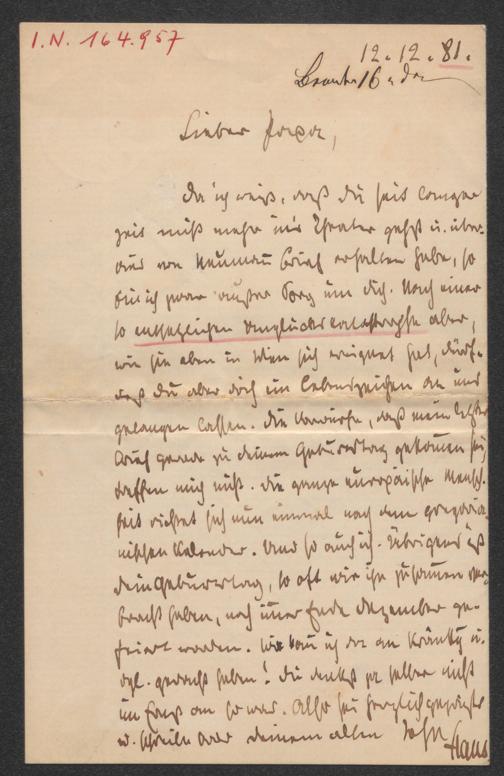 I.N. 164.957
12.12.81.
16
Lieber Papa,
da ich weiß, daß du seit langer
Zeit nicht mehr ins Theater gehst u. über-
von Neumann Brief erhalten habe, so
bin ich zwar außer Sorg um dich. Nach einer
so entsetzlichen Unglückskatastrophe aber,
wie sie eben in Wien sich ereignet hat, dürf-
du aber doch ein Lebenszeichen an uns
gelangen lassen. Die Vorwürfe, daß mein letzter
Brief gerade zu deinem Geburtstag gekommen sei
treffen mich nicht. Die ganze europäische Mensch-
heit richtet sich nun einmal nach dem gregoria-
nischen Kalender. Und so auch ich. Übrigens ist
dein Geburtstag, so oft wir ihn zusammen ver-
bracht haben, noch immer Ende Dezember ge-
feiert worden. Wie kann ich da an Kränkg u.
dgl. gedacht haben! Du denkst ja selber nicht
im Ernst an so was. Also sei herzlich gegrüßt
u. schreibe bald deinem alten Sohn Hans